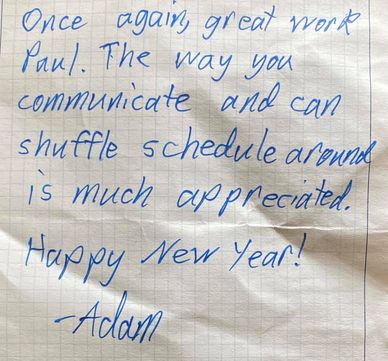 Once again, great work
Paul. The way you
communicate and can
shuffle schedule around
is much appreciated.
Happy New Year!
-Adam